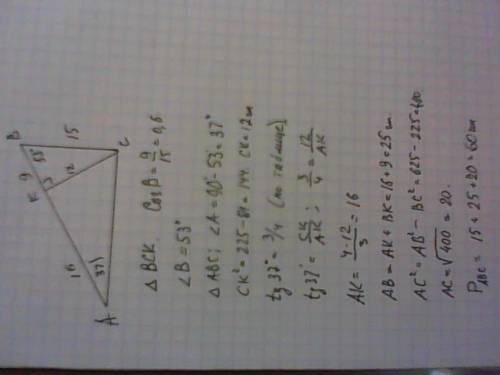 B
9
53°
15
K
3
12
C
16
37°
A
△ BCK. Cos B = 9/15 = 0,6
∠B = 53°
△ ABC; ∠A = 90° - 53° = 37°
CK² = 225 - 81 = 144 CK = 12 м
tg 37° = 3/4 (по таблице)
tg 37° = CK/AK; 3/4 = 12/AK
AK = 4·12/3 = 16
AB = AK + BK = 16 + 9 = 25 м
AC² = AB² - BC² = 625 - 225 = 400
AC = √400 = 20.
P ABC = 15 + 25 + 20 = 60 м